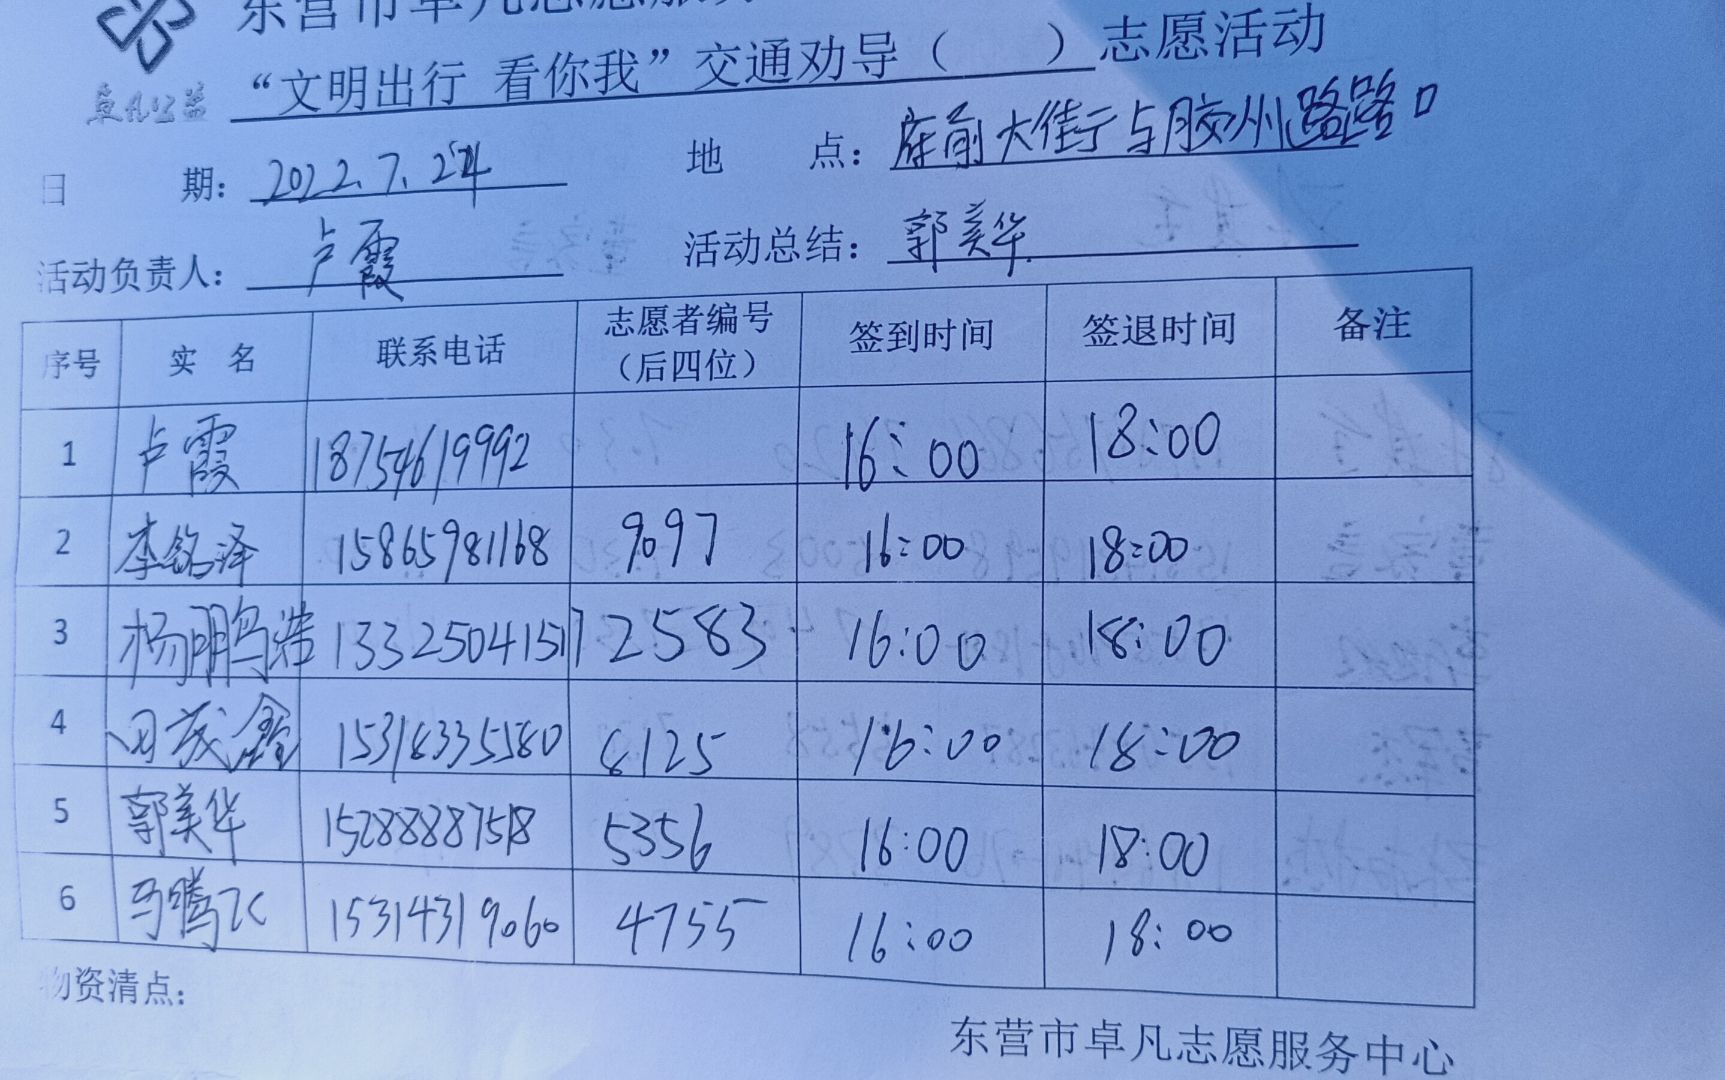 东营市卓凡志愿服务
“文明出行 看你我”交通劝导（ ）志愿活动
卓凡公益
日 期：2022.7.24 地 点：府前大街与胶州路路口
活动负责人：卢霞 活动总结：郭美华
序号 实 名 联系电话 志愿者编号（后四位） 签到时间 签退时间 备注
1 卢霞 18754619992 16:00 18:00
2 李铭泽 15865981168 9097 16:00 18:00
3 杨明鹏浩 13325041517 2583 16:00 18:00
4 田茂鑫 15318335580 8125 16:00 18:00
5 郭美华 15288887518 5356 16:00 18:00
6 马腾飞 15314319060 4755 16:00 18:00
物资清点：
东营市卓凡志愿服务中心